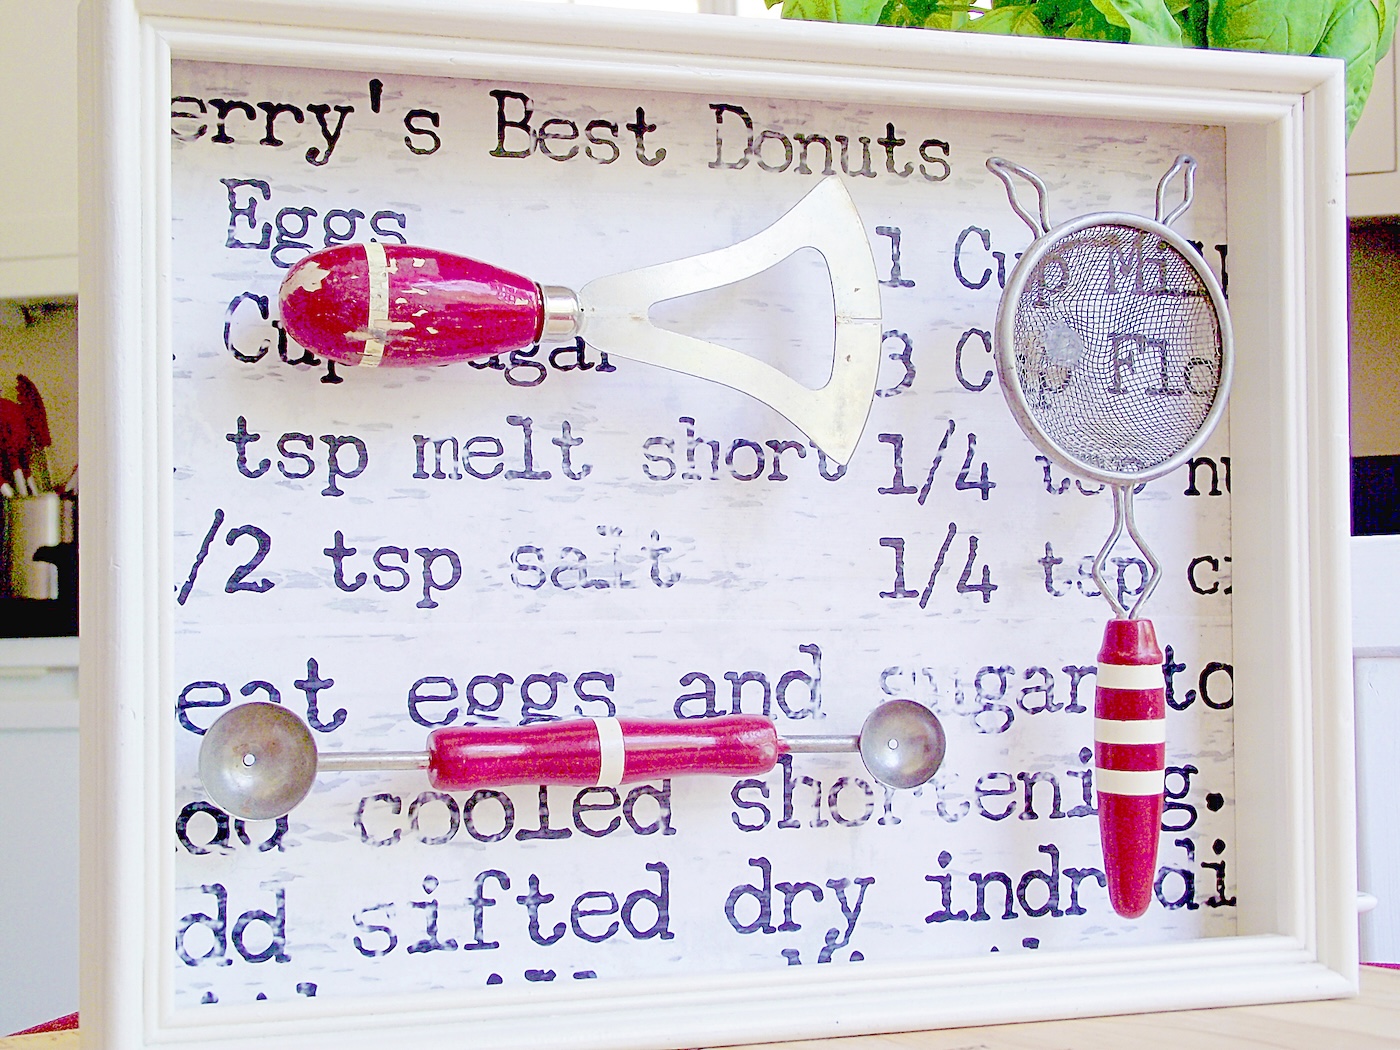 erry's Best Donuts
Eggs 1 Cup Mil
Cup ugar 3 C Flo
tsp melt short 1/4 tsp nu
/2 tsp salt 1/4 tsp c
eat eggs and sugar to
cooled shortening.
dd sifted dry indr di